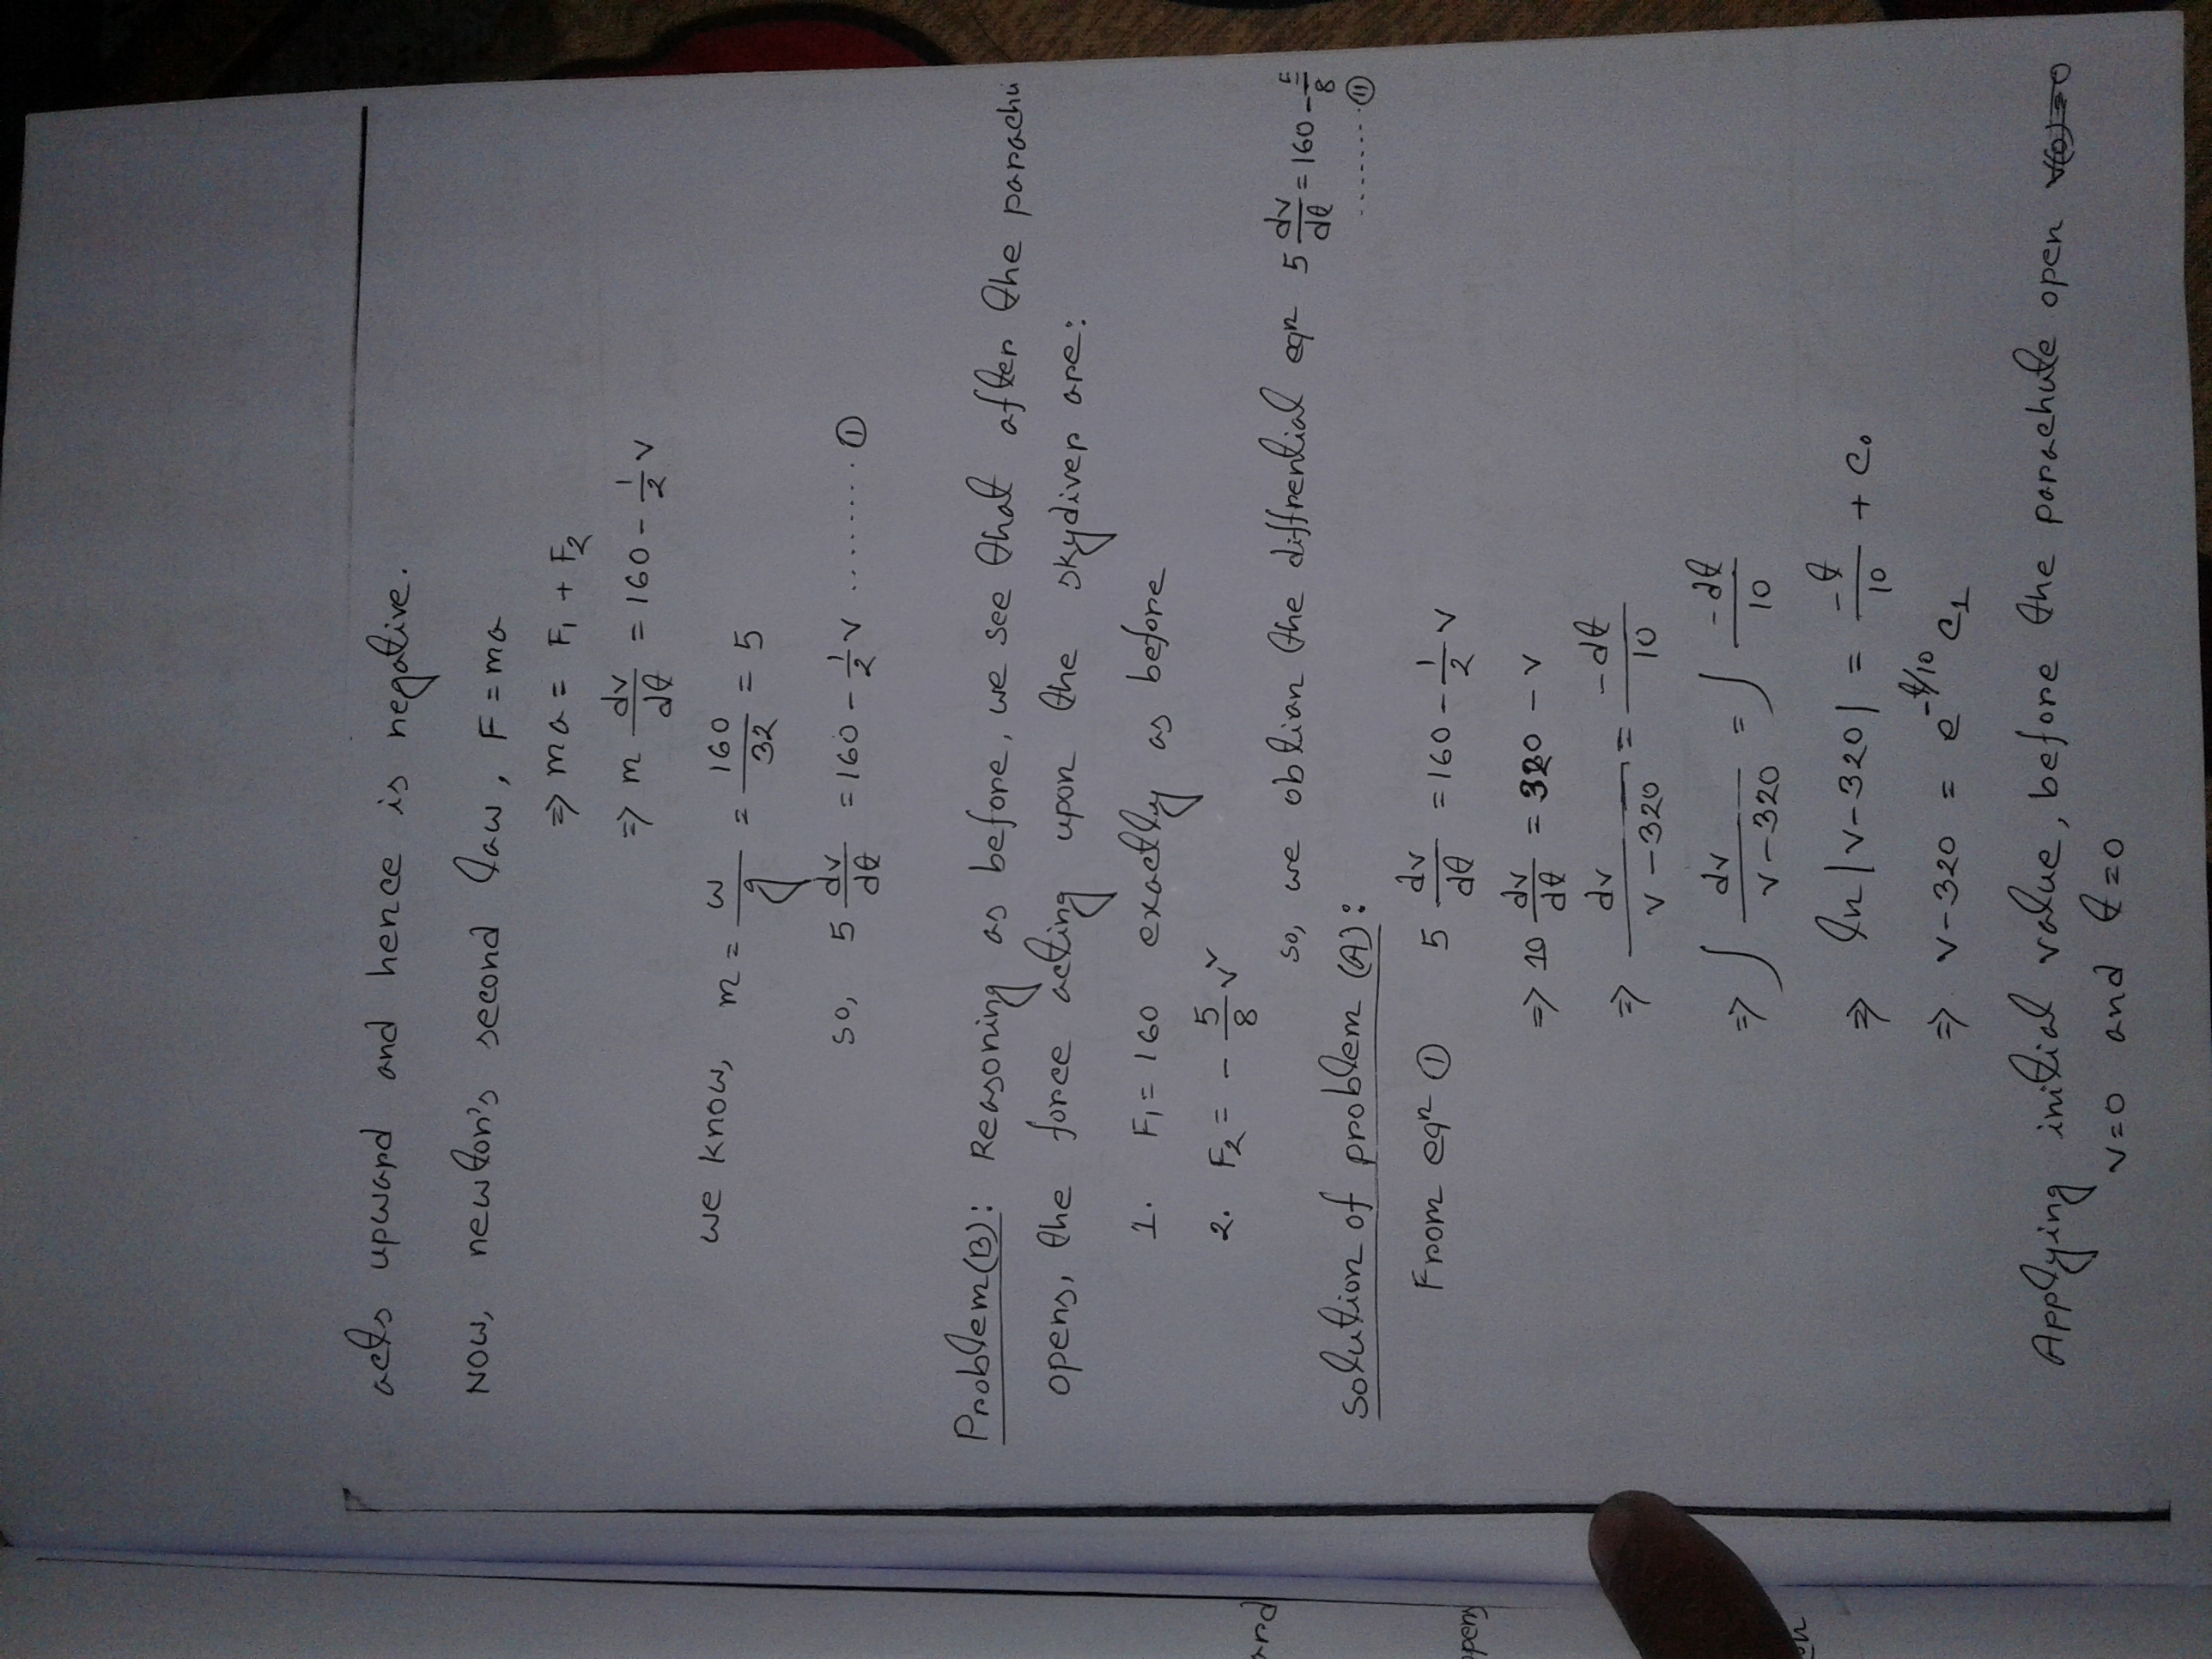 acts upward and hence is negative.
NOW, newton's second law, F = ma
=> ma = F₁ + F₂
=> m dv/dt = 160 - 1/2 v
we know, m = w/g = 160/32 = 5
so, 5 dv/dt = 160 - 1/2 v ........ ①
Problem(B): Reasoning as before, we see that after the parachu
opens, the force acting upon the skydiver are:
1. F₁ = 160 exactly as before
2. F₂ = - 5/8 v²
so, we obtian the diffrential eqn 5 dv/dt = 160 - 5/8
........ ⑪
solution of problem (A):
From eqⁿ ① 5 dv/dt = 160 - 1/2 v
=> 10 dv/dt = 320 - v
=> dv/(v - 320) = -dt/10
=> ∫ dv/(v - 320) = ∫ -dt/10
=> ln |v - 320| = -t/10 + c₀
=> v - 320 = e^(-t/10) c₁
Applying initial value, before the parachute open v(0)=0
v=0 and t=0
ard
opens